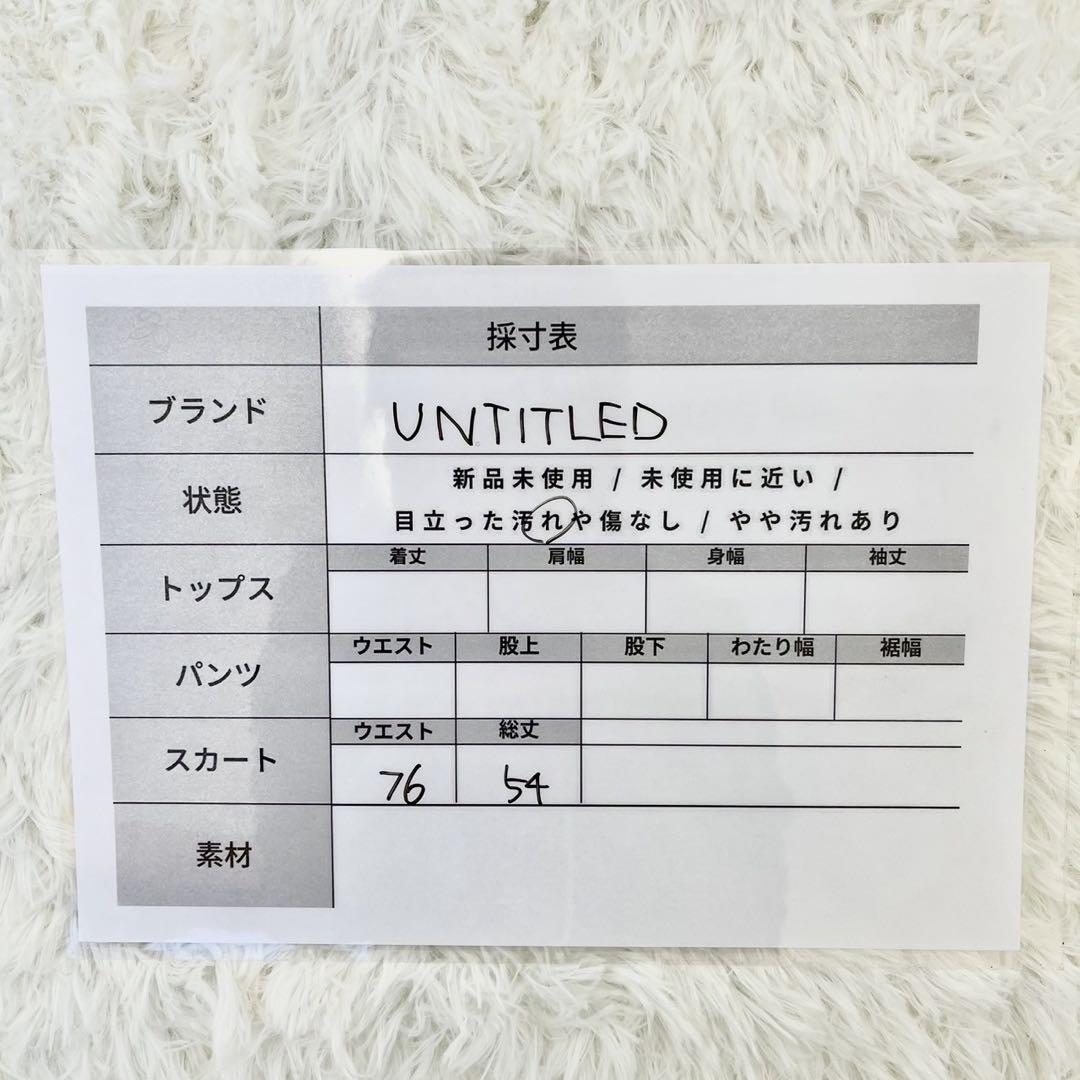 採寸表
ブランド UNTITLED
状態 新品未使用 / 未使用に近い /
目立った汚れや傷なし / やや汚れあり
トップス 着丈 肩幅 身幅 袖丈
パンツ ウエスト 股上 股下 わたり幅 裾幅
スカート ウエスト 総丈
76 54
素材